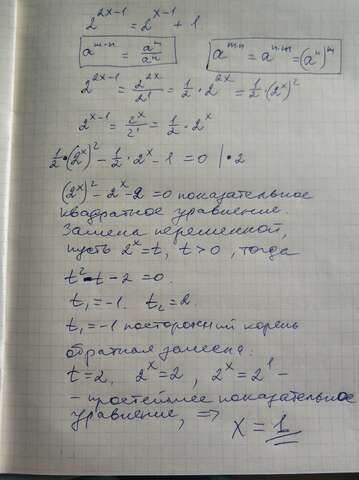 2^{2x-1} = 2^{x-1} + 1.
a^{m-n} = \frac{a^m}{a^n}
a^{m·n} = a^{n·m} = (a^n)^m
2^{2x-1} = \frac{2^{2x}}{2^1} = \frac{1}{2} · 2^{2x} = \frac{1}{2} · (2^x)^2
2^{x-1} = \frac{2^x}{2^1} = \frac{1}{2} · 2^x
\frac{1}{2} · (2^x)^2 - \frac{1}{2} · 2^x - 1 = 0 | · 2
(2^x)^2 - 2^x - 2 = 0 показательное
квадратное уравнение.
Замена переменной,
пусть 2^x = t, t > 0, тогда
t^2 - t - 2 = 0.
t_1 = -1. t_2 = 2.
t_1 = -1 посторонний корень
обратная замена:
t = 2, 2^x = 2, 2^x = 2^1 -
- простейшее показательное
уравнение, =>
x = 1